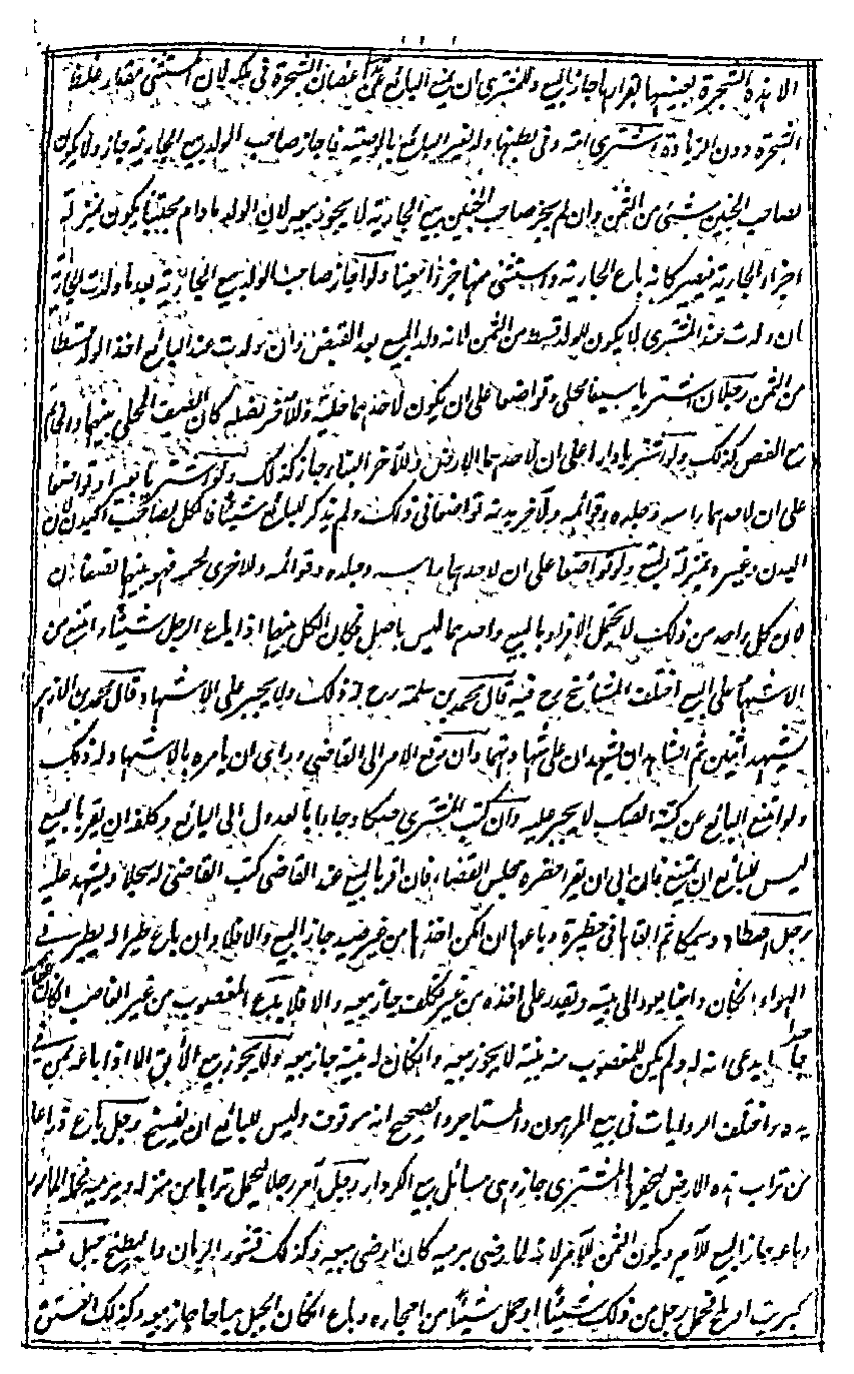 الا هذه الشجرة بعينها بقرارها جاز البيع وللمشترى ان يمنع البائع عن اغصان الشجرة فى ملكه لان المستثنى مقدار غلظ
الشجرة دون الزيادة اشترى امة وفى بطنها ولد لغير البائع بالوصية فاجاز صاحب الولد بيع الجارية جاز ولا يكون
لصاحب الجنين شيئ من الثمن وان لم يجز صاحب الجنين بيع الجارية لا يجوز بيعه لان الولد ما دام مجتنا يكون بمنزلة
اجزاء الجارية فيصير كانه باع الجارية واستثنى منها جزءا معينا ولو اجاز صاحب الولد بيع الجارية بعد ما ولدت الجارية
ان ولدت عند المشترى لا يكون للولد قسط من الثمن لانه ولد المبيع بعد القبض وان ولدت عند البائع اخذ الولد قسطا
من الثمن رجلان اشتريا سيفا محلى وتواضعا على ان يكون لاحدهما حلية وللآخر نصله كان السيف المحلى بينهما والخاتم
مع الفص كذلك ولو اشتريا دارا على ان لاحدهما الارض وللآخر البناء جاز كذلك ولو اشتريا بعيرا وتواضعا
على ان لاحدهما راسه وجلده وقوائمه وللآخر بدنه تواضعا فى ذلك ولم يذكر للبائع شيئا فالكل لصاحب البدن لان
البدن وغيره بمنزلة التبع ولو تواضعا على ان لاحدهما راسه وجلده وقوائمه وللآخر لحمه فهو بينهما نصفان
لان كل واحد من ذلك لا يحتمل الافراد بالبيع واحدهما ليس باصل فكان الكل بينهما اذا باع الرجل شيئا وامتنع من
الاشهاد على البيع اختلف المشائخ رح فيه قال محمد بن سلمة رح له ذلك ولا يجبر على الاشهاد وقال محمد بن الازهر
يشهد اثنين ثم الشاهدان يشهدان على شهادتهما وان رفع الامر الى القاضى وراى ان يامره بالاشهاد له ذلك
ولو امتنع البائع عن كتبة الصك لا يجبر عليه وان كتب المشترى صكا وجاء بالعدول الى البائع وكلفه ان يقر بالبيع
ليس للبائع ان يمتنع فان ابى ان يقر احضره مجلس القضاء فان اقر بالبيع عند القاضى كتب القاضى له سجلا ويشهد عليه
رجل اصطاد سمكا ثم القاها فى حظيرة وباعها ان امكن اخذها من غير صيد جاز البيع والا فلا وان باع طيرا له يطير فى
الهواء ان كان داجنا يعود الى بيته ويقدر على اخذه من غير تكلف جاز بيعه والا فلا بيع المغصوب من غير الغاصب ان كان الغاصب
جاحدا يدعى انه له ولم يكن للمغصوب منه بينة لا يجوز بيعه وان كان له بينة جاز بيعه ولا يجوز بيع الآبق الا اذا باعه ممن فى
يده واختلف الروايات فى بيع المرهون والمستاجر والصحيح انه موقوف وليس للبائع ان يفسخ رجل باع ذراعا
من تراب هذه الارض ليحفرها المشترى جاز وهى مسائل بيع الكردار رجل امر رجلا ليحمل ترابا من منزله ويرميه فحمله المامور
وباعه جاز البيع للآمر ويكون الثمن للآمر لانه لما رضى برميه كان ارضى ببيعه وكذلك قشور الرمان والبطيخ جبل فيه
كبريت او ملح فحمل رجل من ذلك شيئا او حمل شيئا من احجاره وباع ان كان الجبل مباحا جاز بيعه وكذلك الفستق